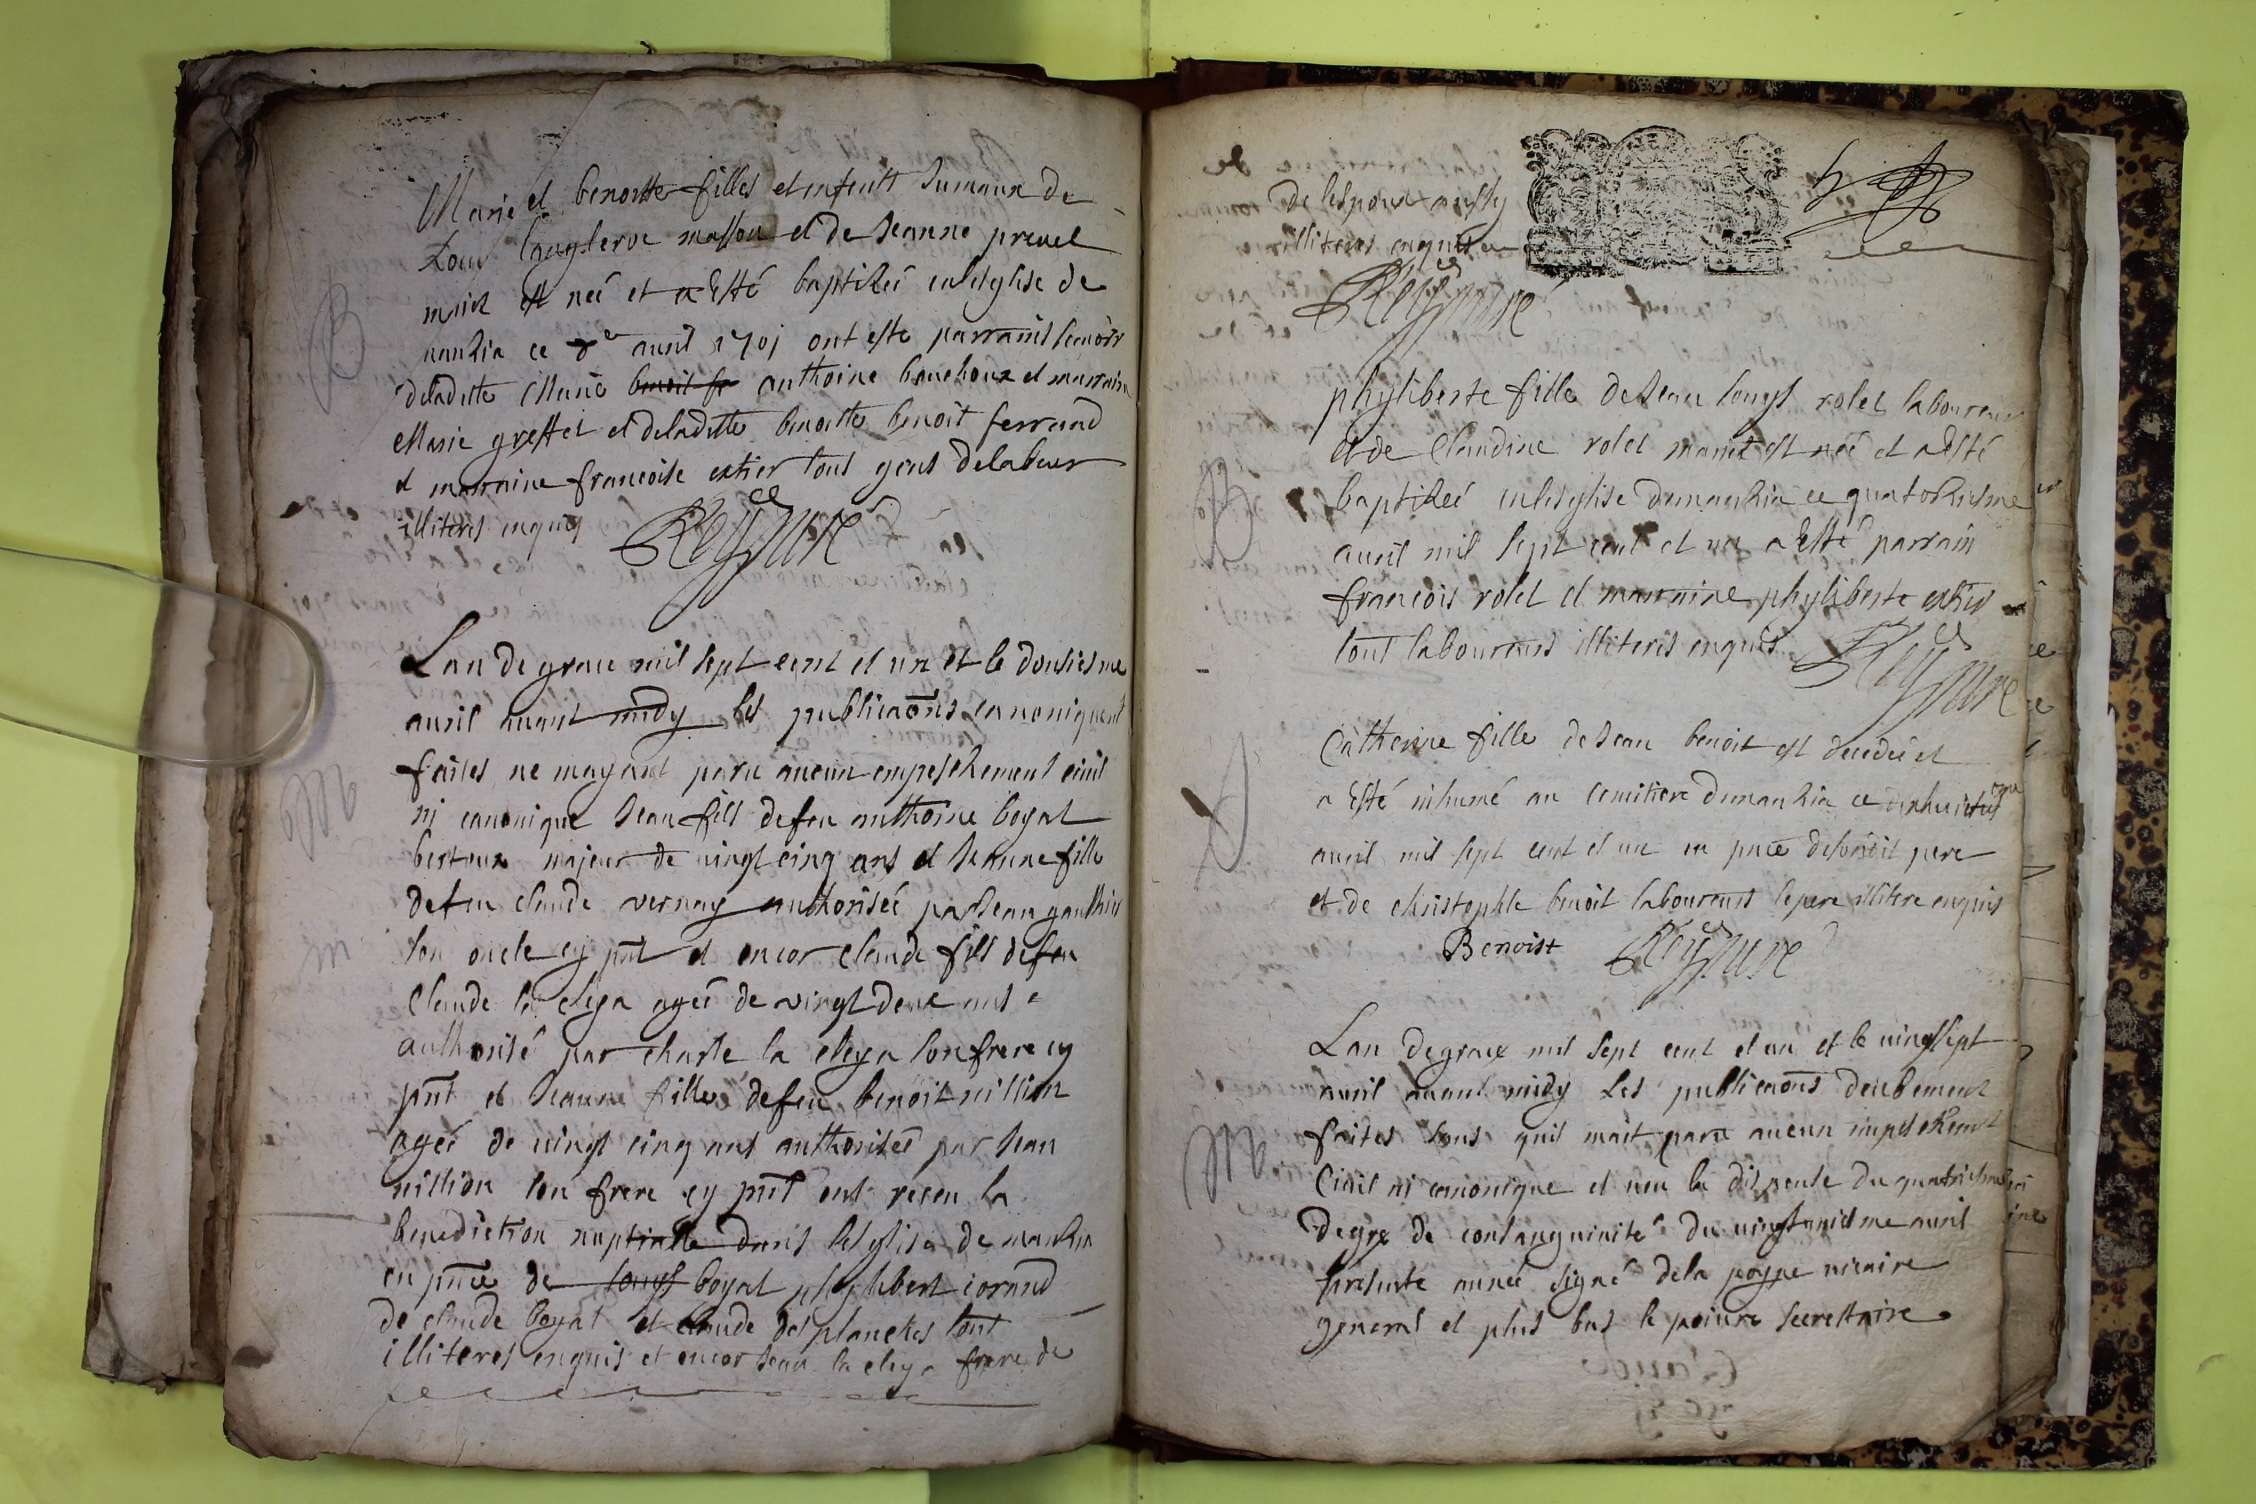 B
Marie et benoitte filles et enfents Jumaux de
Louis langlerve masson et de Jeanne prevel
mariez est neé et a Esté baptizeé en lesglise de
manzia ce avril 1701 ont este parrains scauoir
deladitte Marie benoit fe anthoine bouchoux et marraine
Marie greffet et deladitte benoitte benoit ferrand
et marraine francoise extier tous gens delabeur
illiteres enquis Rey curé
M
Lan de grace mil sept cent et un et le dousiesme
auril auant midy les publicaons canoniquemt
faites ne mayant paru aucun empeschement ciuil
ni canonique Jean fils defeu anthoine boyat
berteux majeur de vingt cinq ans et Jeanne fille
defeu claude vernay authoriseé par Jean gauthier
son oncle cy pnt et encor claude fils defeu
Claude la cleya ageé de vingt deux ans
authorisé par charle la cleya son frere cy
pnt et Jeanne fille defeu benoit nillion
ageé de vingt cinq ans authoriseé par Jean
nillion son frere cy pnt ont receu la
benediction nuptialle dans lesglise de manzia
en pnce de louys boyat phylibert corand
de claude boyat et claude des planches tous
illiteres enquis et encor Jean la cleya frere de
de lespoux aussy
illiteres enquis
Rey curé
B
phyliberte fille de Jean louys rolet laboureur
et de Claudine rolet mariez est neé et a Esté
baptizeé en lesglise de manzia ce quatorziesme
auril mil sept cent et un a Esté parrain
francois rolet et marraine phyliberte extier
tous laboureurs illiteres enquis Rey curé
Catherine fille de Jean benoit est decedeé et
a Esté inhumé au cemitiere de manzia ce dixhuictiesme
auril mil sept cent et un en pnce desondit pere
et de christophle benoit laboureurs le pere illitere enquis
Benoist Rey curé
M
Lan de grace mil sept cent et un et le vingt sept
auril auant midy Les publicaons deubement
faites sans quil mait paru aucun impeschemt
Ciuil ni canonique et ueu la dispense du quatriesme
degre de consanguinité du vingt uniesme auril
presente anneé signé dela poype vicaire
general et plus bas le poiure secrettaire